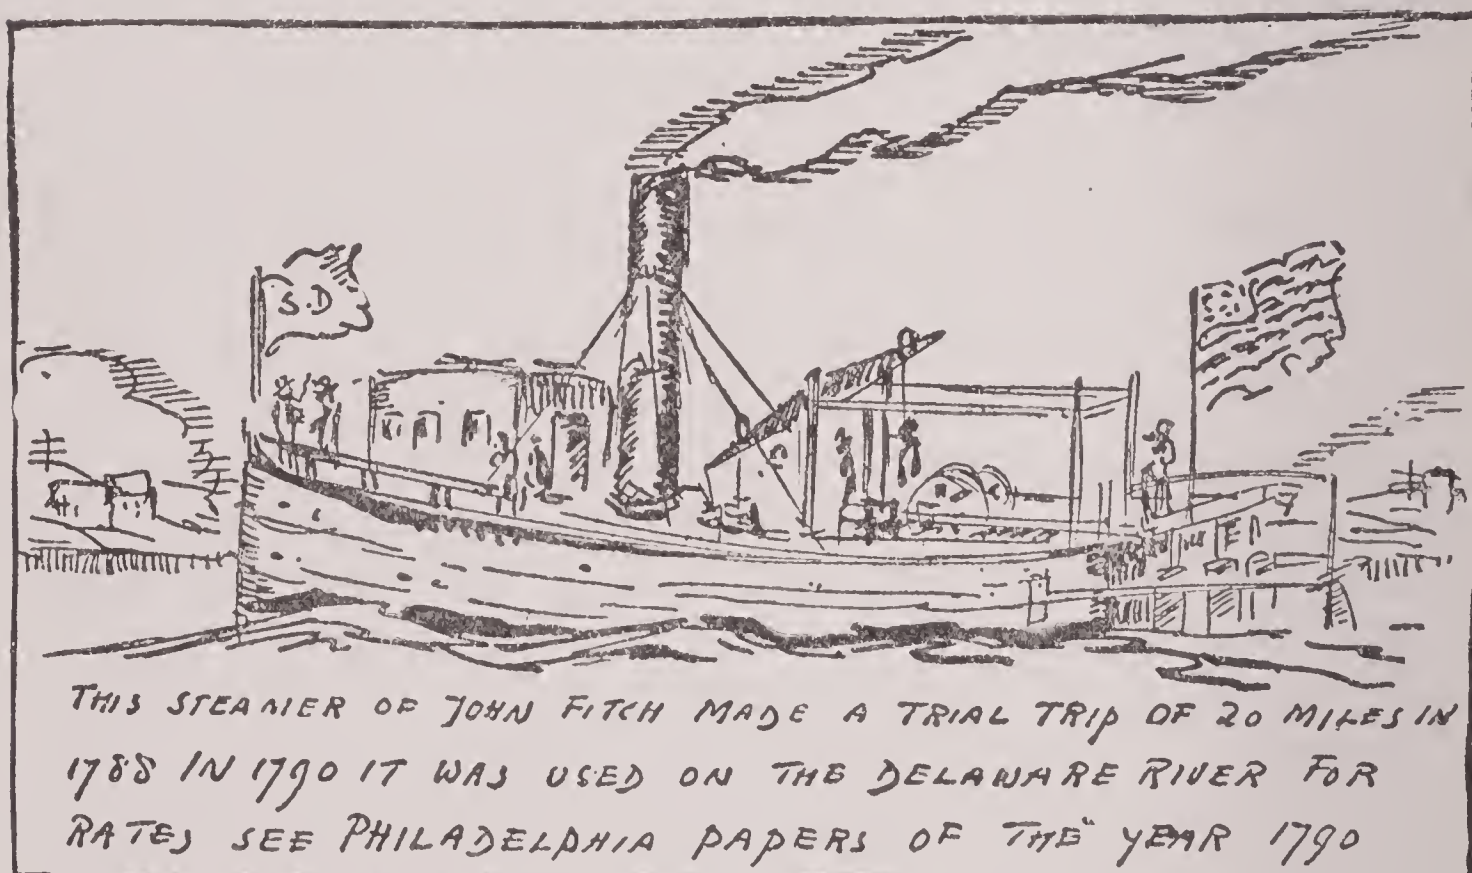 S.D
THIS STEAMER OF JOHN FITCH MADE A TRIAL TRIP OF 20 MILES IN
1788 IN 1790 IT WAS USED ON THE DELAWARE RIVER FOR
RATES SEE PHILADELPHIA PAPERS OF THE" YEAR 1790